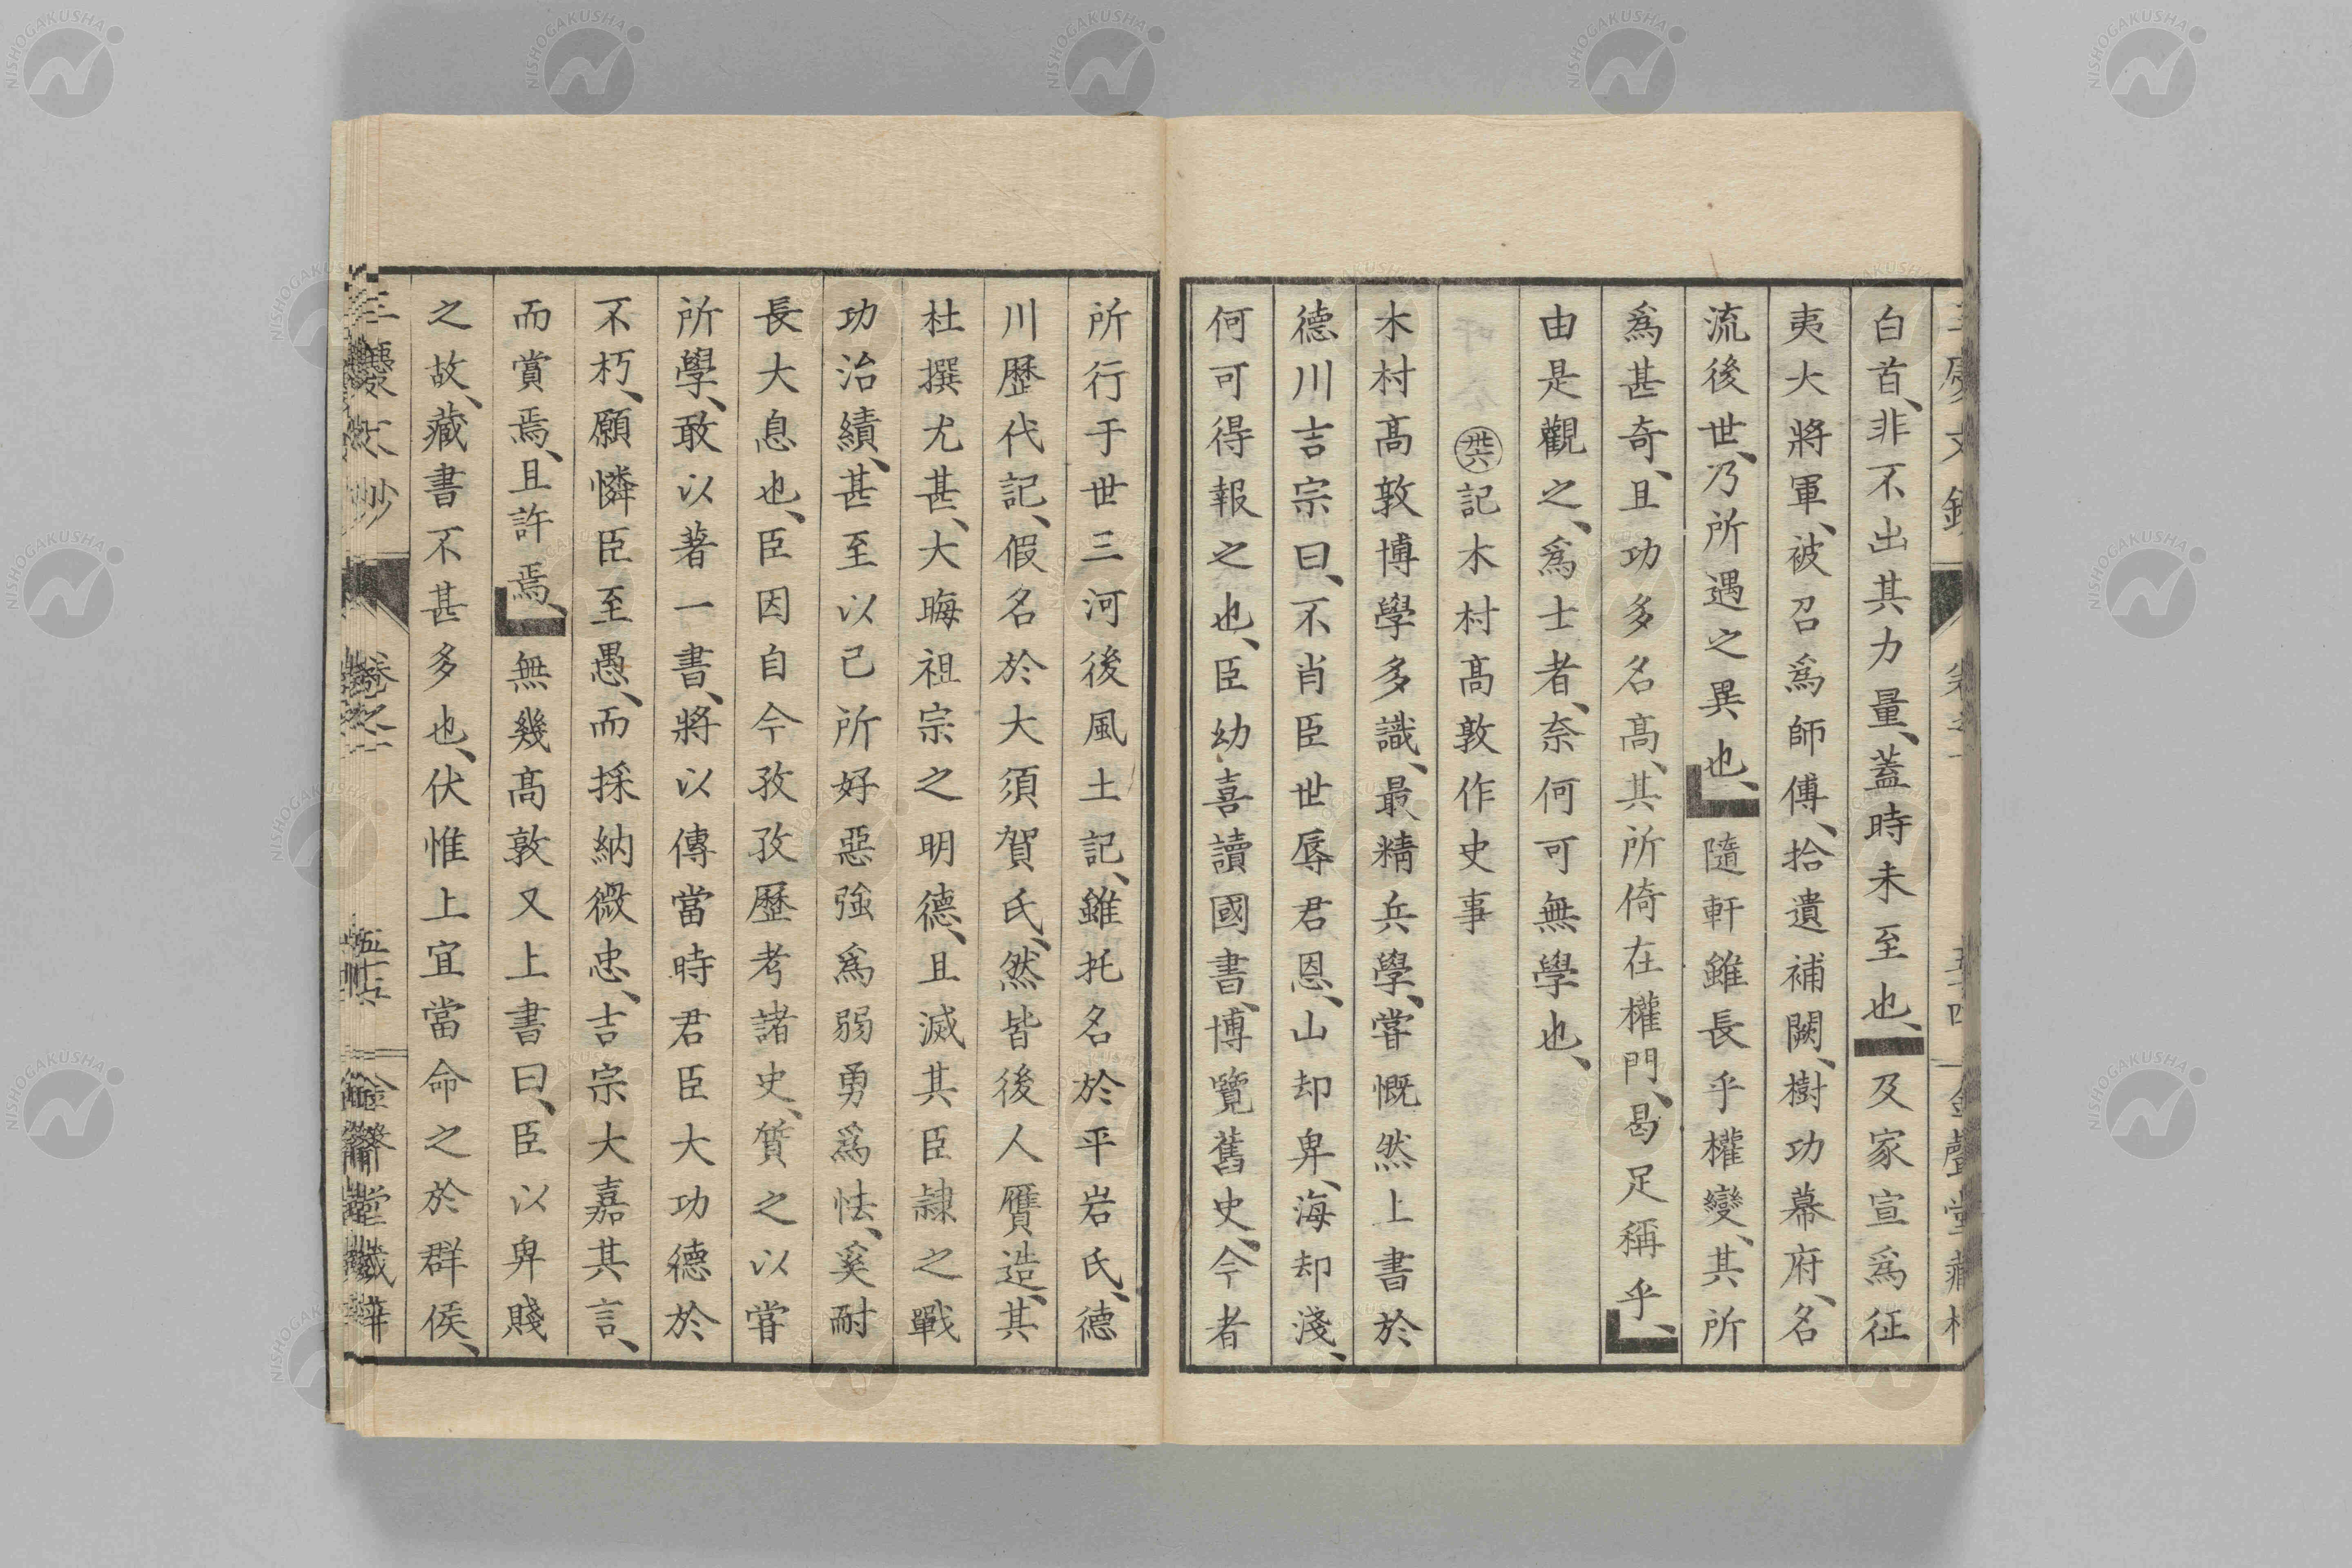 白首、非不出其力量、蓋時未至也、及家宣爲征
夷大將軍、被召爲師傅、拾遺補闕、樹功幕府、名
流後世、乃所遇之異也、隨軒雖長乎權變、其所
爲甚奇、且功多名髙、其所倚在權門、曷足稱乎、
由是觀之、爲士者、奈何可無學也、
記木村髙敦作史事
木村髙敦博學多識、最精兵學、嘗慨然上書於
德川吉宗曰、不肖臣世辱君恩、山却卑、海却淺、
何可得報之也、臣幼喜讀國書、博覽舊史、今者
所行于世三河後風土記、雖托名於平岩氏、德
川歷代記、假名於大須賀氏、然皆後人贋造、其
杜撰尤甚、大晦祖宗之明德、且滅其臣隷之戰
功治績、甚至以己所好惡強爲弱勇爲怯、奚耐
長大息也、臣因自今孜孜歷考諸史、質之以嘗
所學、敢以著一書、將以傳當時君臣大功德於
不朽、願憐臣至愚、而採納微忠、吉宗大嘉其言、
而賞焉、且許焉、無幾髙敦又上書曰、臣以卑賤
之故、藏書不甚多也、伏惟上宜當命之於群侯、
NISHOGAKUSHA